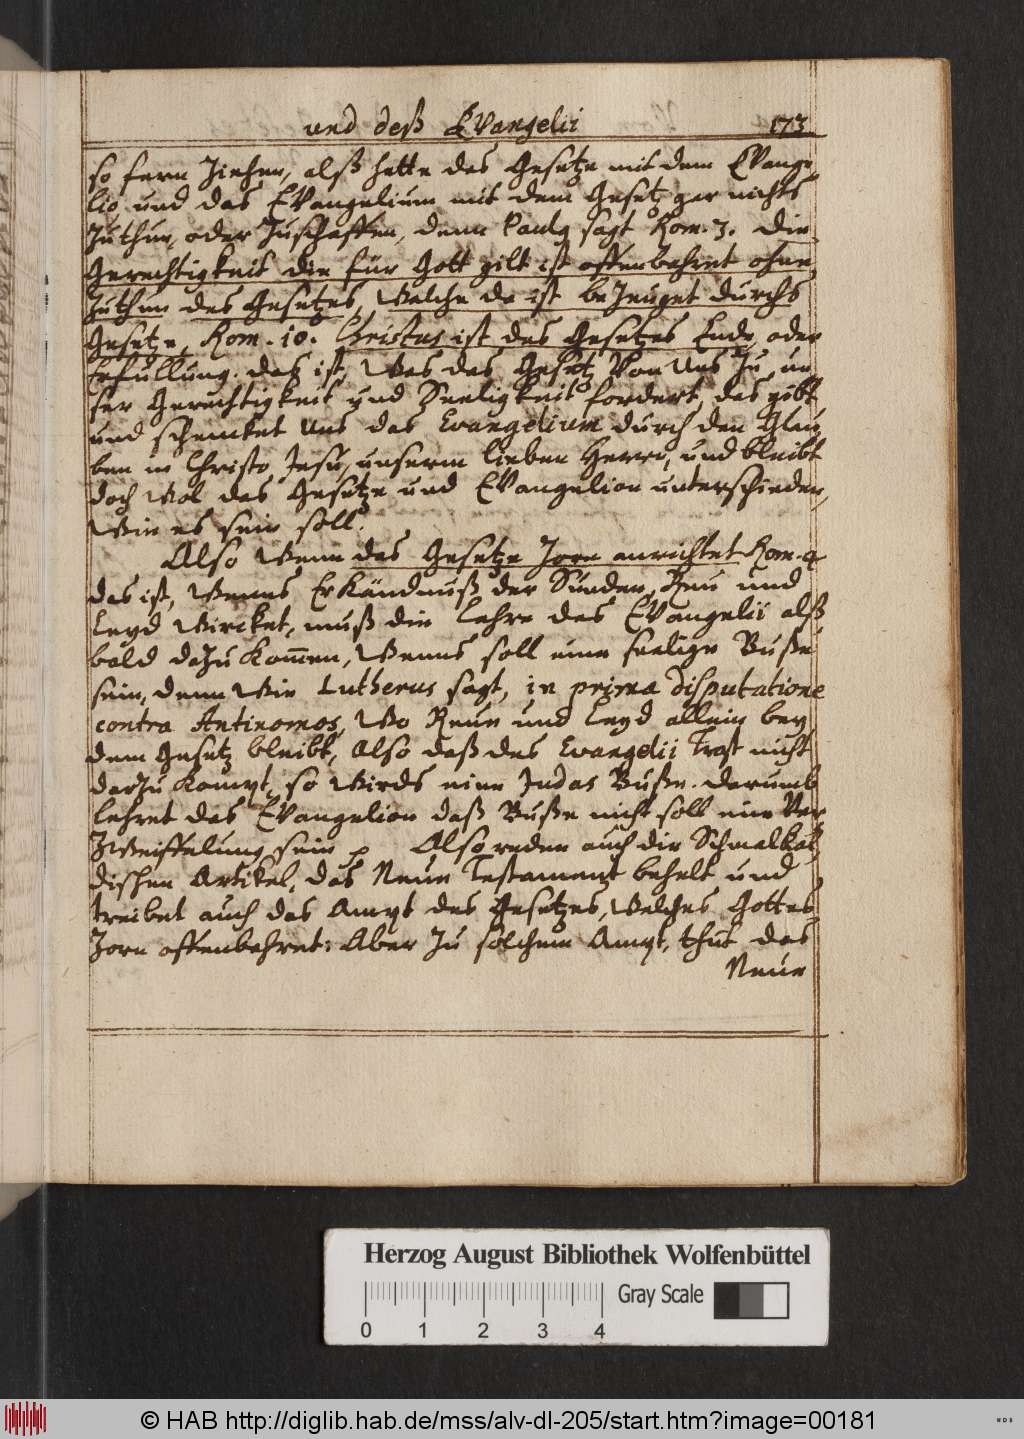 und deß Evangelii 173
so fern ziehen, alß hette das Gesetze mit dem Evange-
lio, und das Evangelium mit dem Gesetz gar nichts
zuthun, oder zuschaffen, denn Paulq sagt Rom. 3. Die
Gerechtigkeit die für Gott gilt ist offenbahret ohne
zuthun des Gesetzes, Welche da ist bezeuget durchs
Gesetze, Rom. 10. Christus ist des Gesetzes Ende, oder
Erfüllung. das ist, Was das Gesetz Von Uns zu un-
ser Gerechtigkeit und Seeligkeit fordert, das gibt
und schencket Uns das Evangelium durch den Glau-
ben in Christo Jesu, unserm lieben Herrn, und bleibt
doch Wol das Gesetze und Evangelion unterschieden,
Wie es sein soll.
Also Wenn das Gesetze Zorn anrichtet Rom. 4
das ist, Wenns Erkändnuß der Sünden, Reu und
Leyd Wircket, muß die Lehre des Evangelii alß
bald dazu kom̄en, Wenns soll eine seelige Buße
sein, denn Wie Lutherus sagt, in prima disputatione
contra Antinomos, Wo Reue und Leyd allein bey
dem Gesetz bleibt, Also daß des Evangelii Trost nicht
darzu kompt, so Wirds eine Judas Buße. darumb
lehret das Evangelion daß Buße nicht soll eine Ver-
zweiffelung sein p Also reden auch die Schmalkal-
dischen Artikel, das Neue Testament behelt und
treibet auch das Ampt des Gesetzes, Welches Gottes
Zorn offenbahret: Aber zu solchem Ampt, thut das
Neue
Herzog August Bibliothek Wolfenbüttel
Gray Scale
0 1 2 3 4
© HAB http://diglib.hab.de/mss/alv-dl-205/start.htm?image=00181